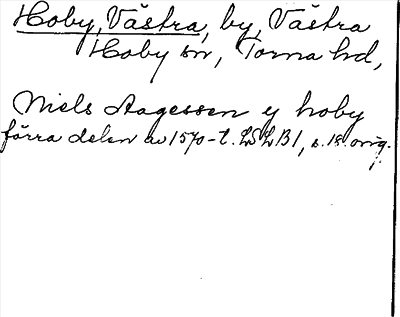 Hoby, Västra, by, Västra
Hoby sn, Torna hd,
Niels Aagessen y hoby
förra delen av 1570-t. LSLB1, s. 18. orig.